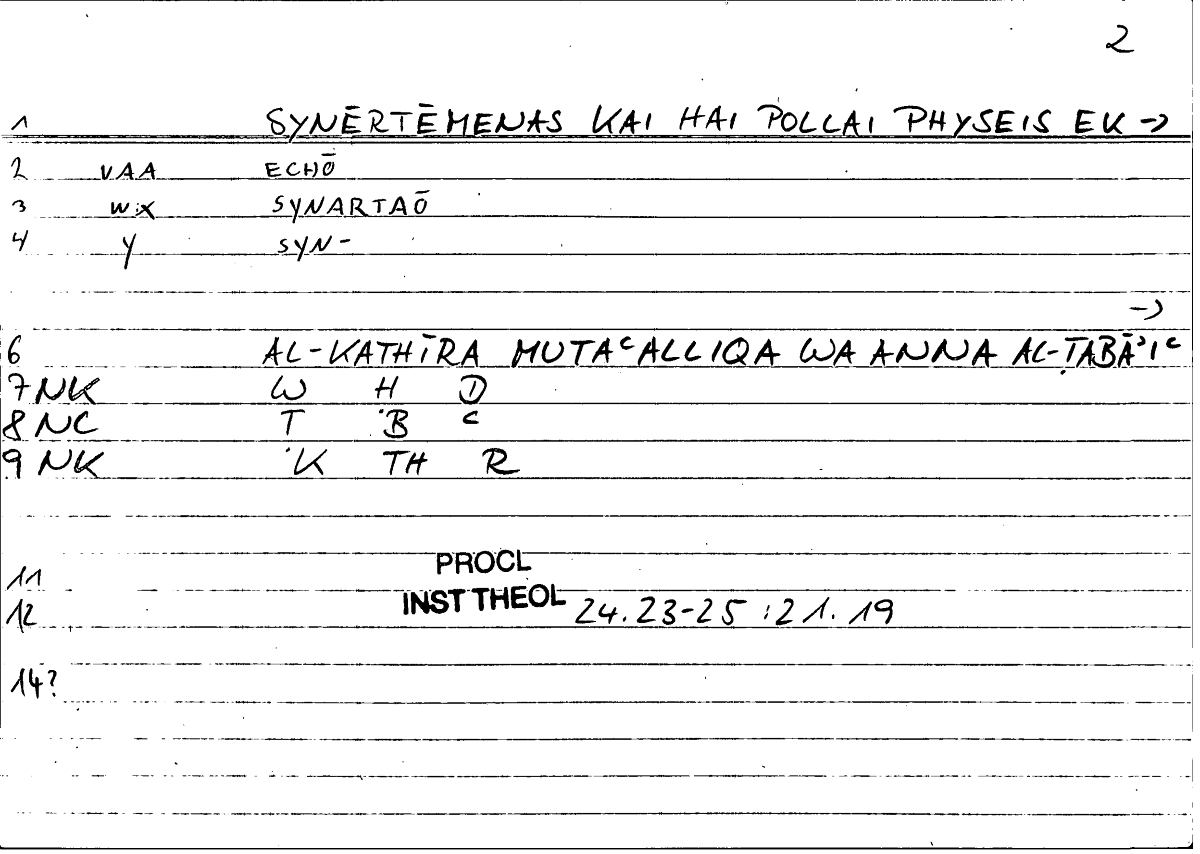 2
1 SYNĒRTĒMENAS KAI HAI POLLAI PHYSEIS EK →
2 VAA ECHŌ
3 W:X SYNARTAŌ
4 Y SYN-
→
6 AL-KATHĪRA MUTAᶜALLIQA WA ANNA AL-ṬABĀʾIᶜ
7 NK W H D
8 NC Ṭ B ᶜ
9 NK K TH R
11 PROCL
12 INST THEOL 24.23-25 :21.19
14?